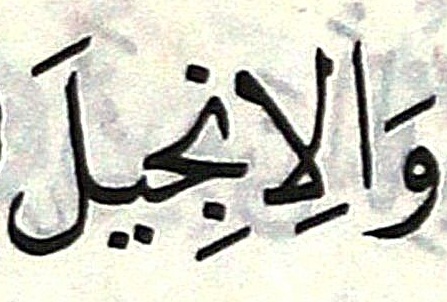 وَالاِنجِيلَ